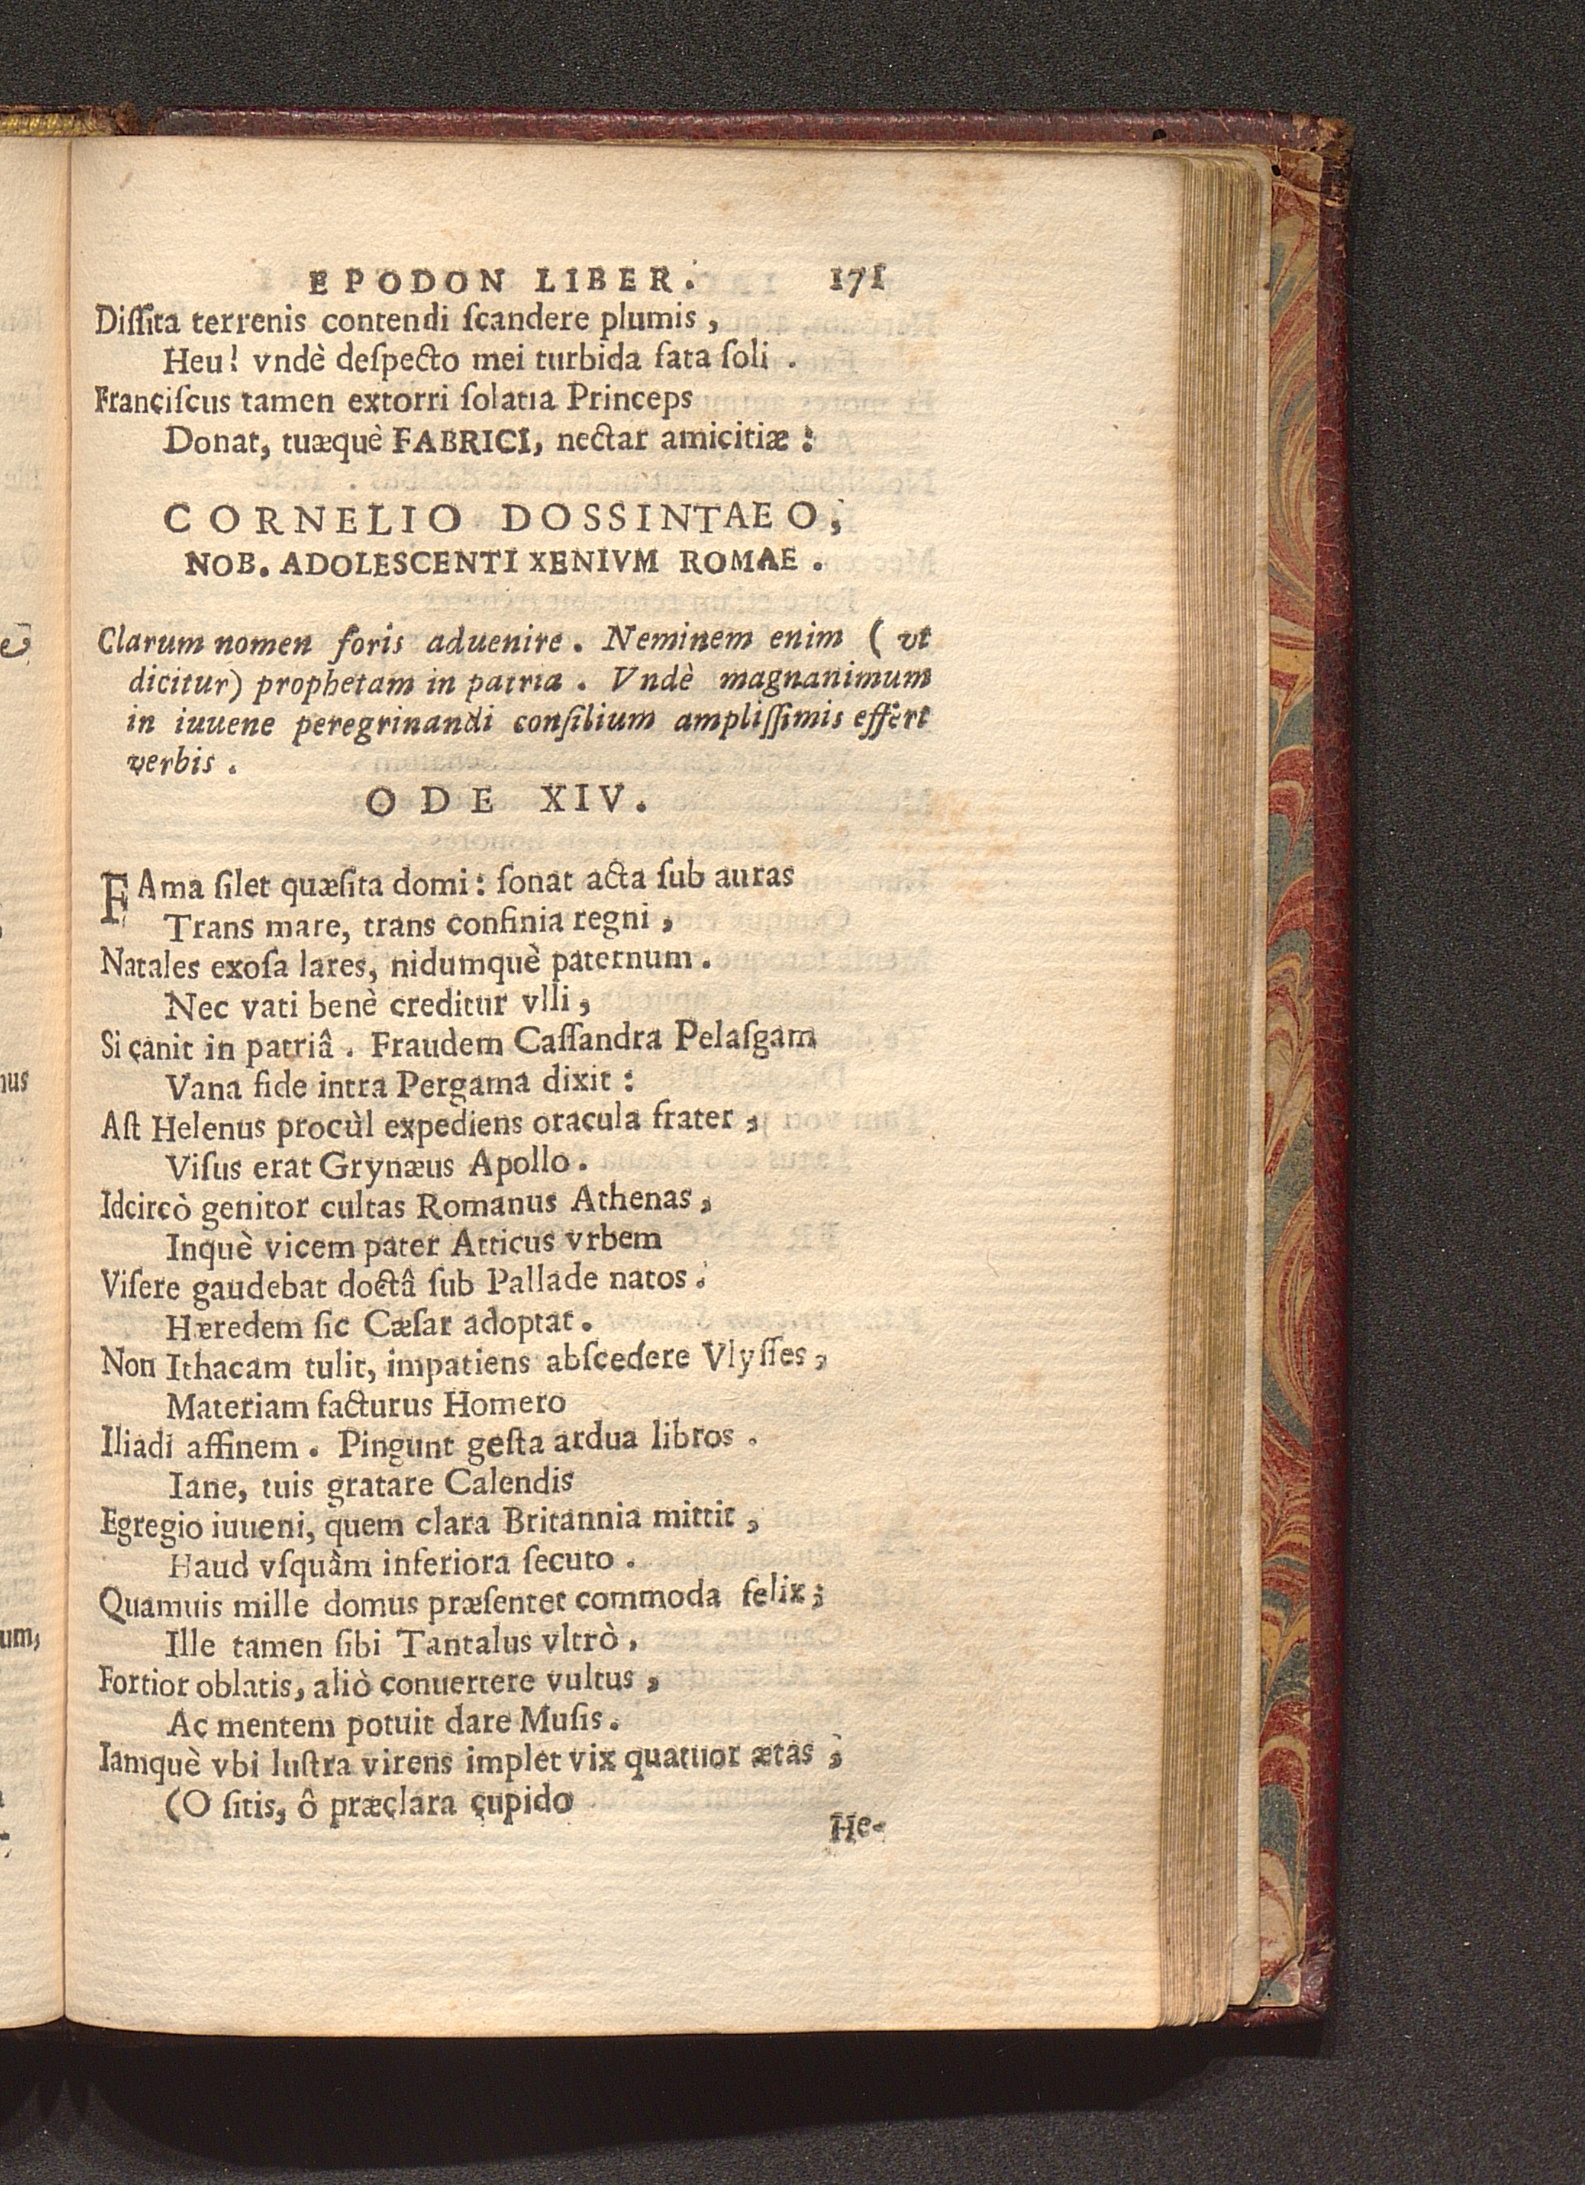 EPODON LIBER. 171
Diſſita terrenis contendi ſcandere plumis,
Heu! vndè deſpecto mei turbida fata ſoli.
Franciſcus tamen extorri ſolatia Princeps
Donat, tuæquè FABRICI, nectar amicitiæ:
CORNELIO DOSSINTAEO,
NOB. ADOLESCENTI XENIVM ROMAE.
Clarum nomen foris aduenire. Neminem enim (vt
dicitur) prophetam in patria. Vndè magnanimum
in iuuene peregrinandi conſilium ampliſſimis effert
verbis.
ODE XIV.
FAma ſilet quæſita domi: ſonat acta ſub auras
Trans mare, trans confinia regni,
Natales exoſa lares, nidumquè paternum.
Nec vati benè creditur vlli,
Si canit in patriâ. Fraudem Caſſandra Pelaſgam
Vana fide intra Pergama dixit:
Aſt Helenus procùl expediens oracula frater,
Viſus erat Grynæus Apollo.
Idcircò genitor cultas Romanus Athenas,
Inquè vicem pater Atticus vrbem
Viſere gaudebat doctâ ſub Pallade natos.
Hæredem ſic Cæſar adoptat.
Non Ithacam tulit, impatiens abſcedere Vlyſſes,
Materiam facturus Homero
Iliadi affinem. Pingunt geſta ardua libros.
Iane, tuis gratare Calendis
Egregio iuueni, quem clara Britannia mittit,
Haud vſquàm inferiora ſecuto.
Quamuis mille domus præſentet commoda felix;
Ille tamen ſibi Tantalus vltrò,
Fortior oblatis, aliò conuertere vultus,
Ac mentem potuit dare Muſis.
Iamquè vbi luſtra virens implet vix quatuor ætas;
(O ſitis, ô præclara cupido
He-